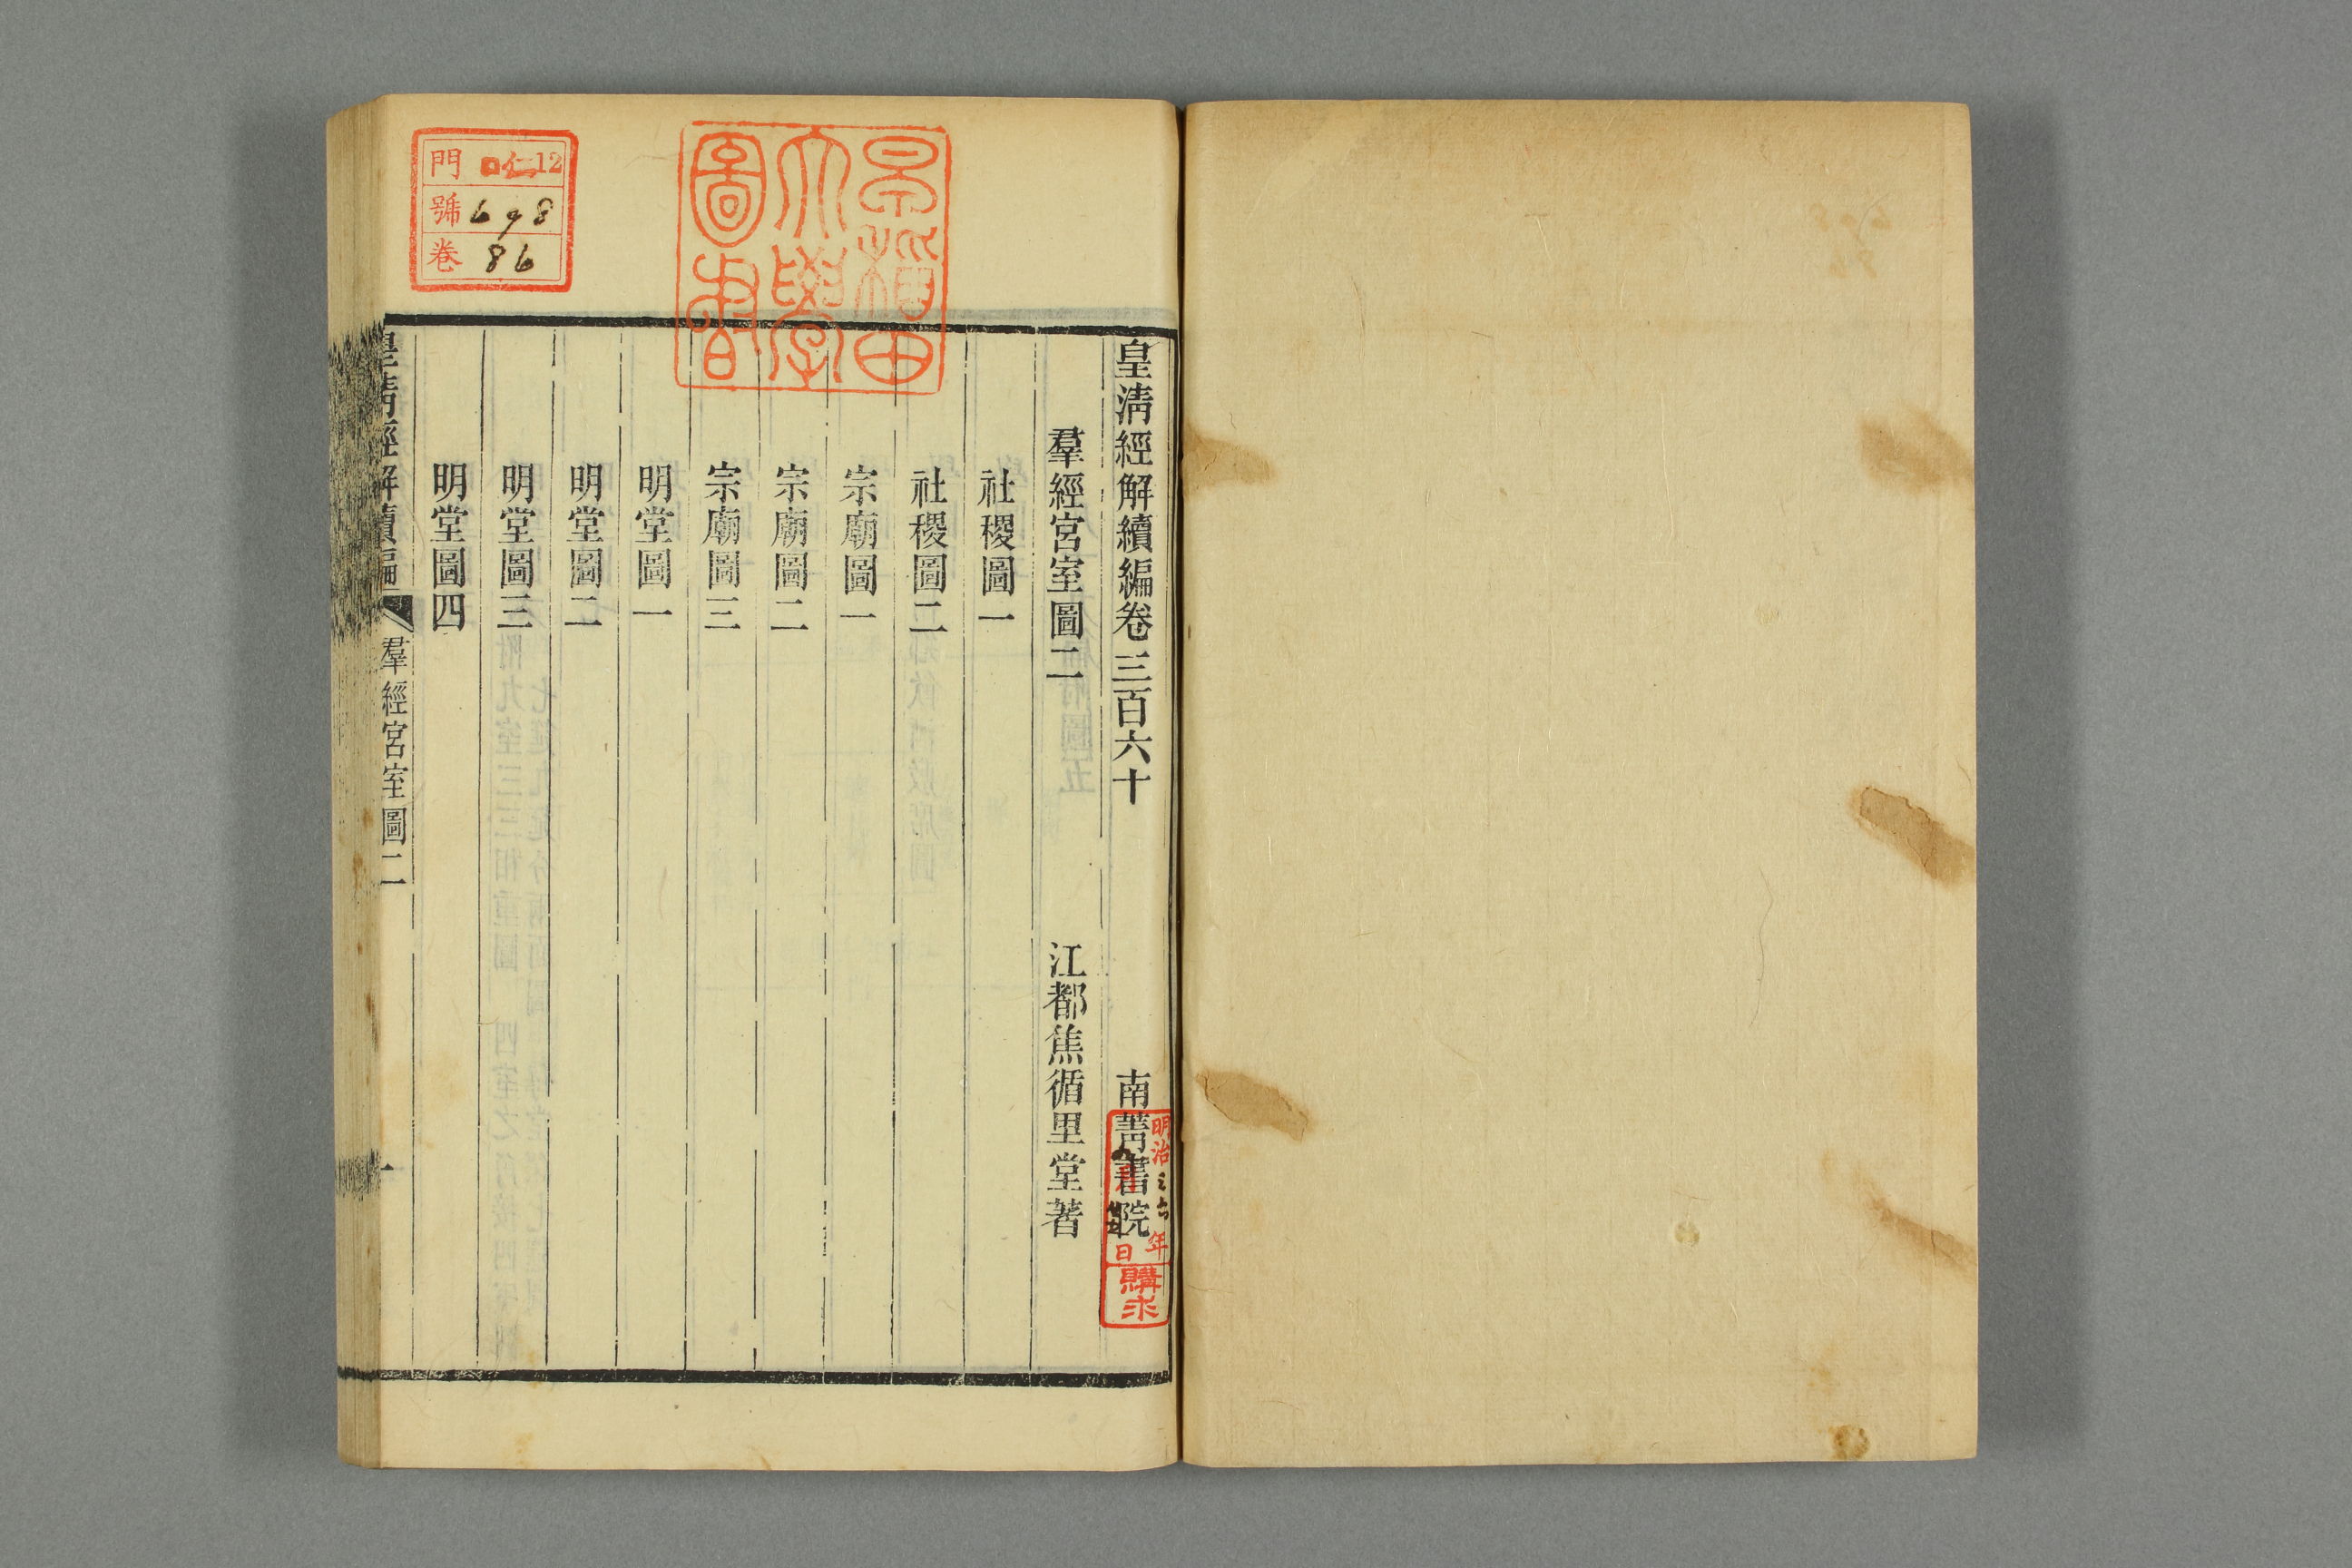 皇清經解續編卷三百六十 南菁書院
羣經宮室圖二 江都焦循里堂著
社稷圖一
社稷圖二
宗廟圖一
宗廟圖二
宗廟圖三
明堂圖一
明堂圖二
明堂圖三
明堂圖四
皇清經解續編 羣經宮室圖二 一
早稻田
大學
圖書
門 ロ仁12
號 698
卷 86
明治三六年
日
購求